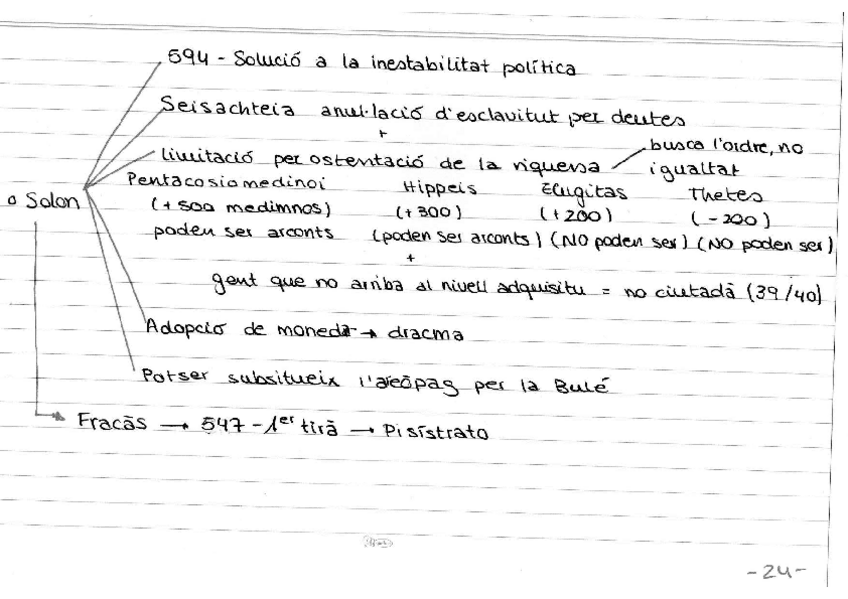 594 - Solució a la inestabilitat política
Seisachteia anul·lació d'esclavitut per deutes
+
limitació per ostentació de la riquesa
busca l'ordre, no
igualtat
o Solon
Pentacosiomedinoi Hippeis Zeugitas Thetes
(+ 500 medimnos) (+ 300) (+ 200) (- 200)
poden ser arconts (poden ser arconts) (NO poden ser) (NO poden ser)
+
gent que no arriba al nivell adquisitu = no ciutadà (39/40)
Adopció de moneda → dracma
Potser subsitueix l'areòpag per la Bulé
Fracàs → 547 - 1er tirà → Pisístrato
-24-